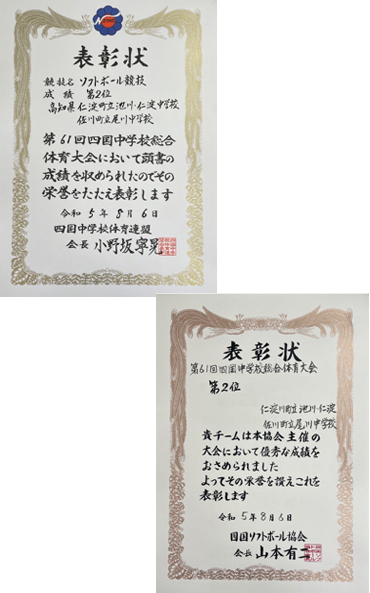 表彰状
競技名 ソフトボール競技
成績 第2位
高知県 仁淀町立池川・仁淀中学校
佐川町立尾川中学校
第61回四国中学校総合
体育大会において頭書の
成績を収められたのでその
栄誉をたたえ表彰します
令和5年8月6日
四国中学校体育連盟
会長 小野坂寧晃
表彰状
第61回四国中学校総合体育大会
第2位
仁淀川町立池川・仁淀
佐川町立尾川中学校
貴チームは本協会主催の
大会において優秀な成績を
おさめられました
よってその栄誉を讃えこれを
表彰します
令和5年8月6日
四国ソフトボール協会
会長 山本有二